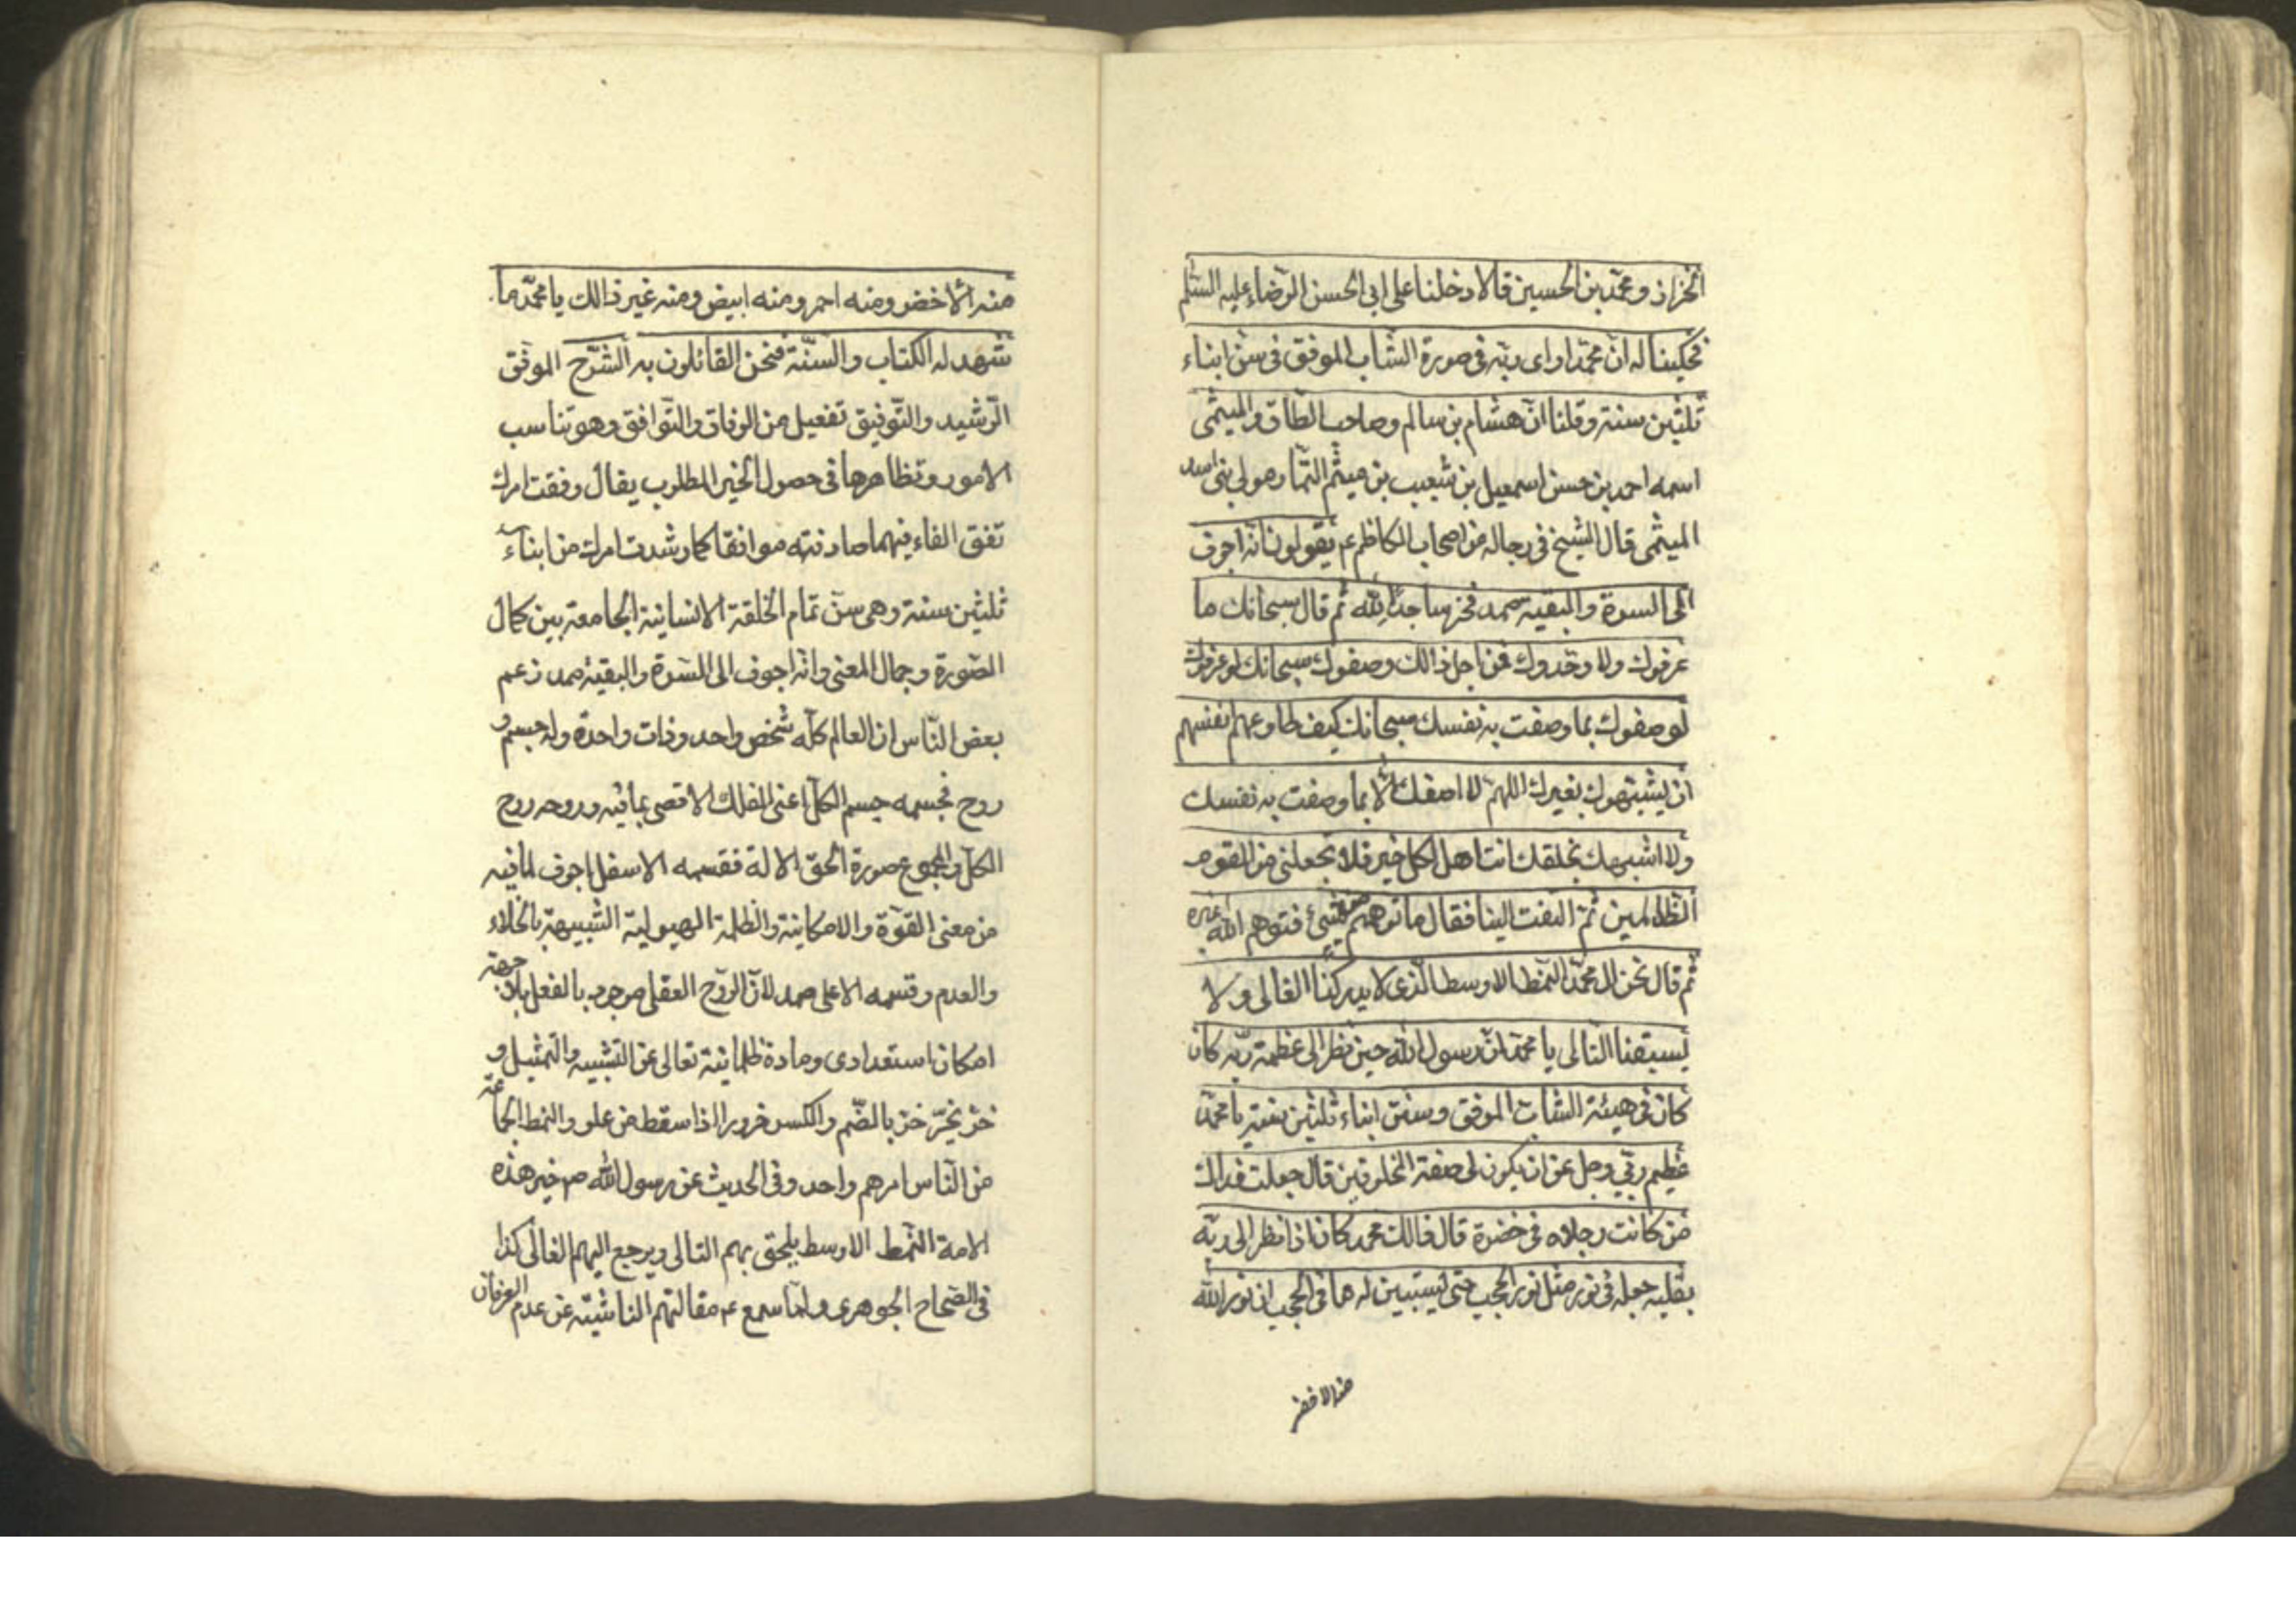 الخزاز ومحمد بن الحسين قالا دخلنا على ابى الحسن الرضاء عليه السلم
فحكينا له ان محمدا راى ربه فى صورة الشاب الموفق فى سن ابناء
ثلثين سنة وقلنا ان هشام بن سالم وصاحب الطاق والميثمى
اسمه احمد بن حسن اسمعيل بن شعيب بن ميثم التمار مولى بنى اسد
الميثمى قال الشيخ فى رجاله من اصحاب الكاظم ع يقولون انه اجوف
الى السرة والبقية صمد فخر ساجدا لله ثم قال سبحانك ما
عرفوك ولا وحدوك فمن اجل ذالك وصفوك سبحانك لو عرفوك
لوصفوك بما وصفت به نفسك سبحانك كيف طاوعهم انفسهم
ان يشبهوك بغيرك اللهم لا اصفك الا بما وصفت به نفسك
ولا اشبهك بخلقك انت اهل لكل خير فلا تجعلنى من القوم
الظالمين ثم التفت الينا فقال ما توهمتم من شئ فتوهم الله غيره
ثم قال نحن ال محمد النمط الاوسط الذى لا يدركنا الغالى ولا
يسبقنا التالى يا محمد ان رسول الله حين نظر الى عظمة ربه كان
كان فى هيئة الشاب الموفق وسن ابناء ثلثين سنة يا محمد
عظم ربى وجل عن ان يكون فى صفة المخلوقين قال جعلت فداك
من كانت رجلاه فى خضرة قال ذالك محمد كان اذا نظر الى ربه
بقلبه جعله فى نور مثل نور الحجب حتى يستبين له ما فى الحجب ان نور الله
منه الاخضر
منه الاخضر ومنه احمر ومنه ابيض ومنه غير ذالك يا محمد ما
شهد له الكتاب والسنة فنحن القائلون به الشرح الموفق
الرشيد والتوفيق تفعيل من الوفاق والتوافق وهو تناسب
الامور وتظاهرها فى حصول الخير المطلوب يقال وفقت امرك
تفق الفاء فيهما صادفته موافقا كما رشدت امرك من ابناء
ثلثين سنة وهى سن تمام الخلقة الانسانية الجامعة بين كمال
الصورة وجمال المعنى وانه اجوف الى السرة والبقية صمد زعم
بعض الناس ان العالم كله شخص واحد وذات واحدة وله جسم و
روح فجسمه جسم الكل اعنى الفلك الاقصى بما فيه وروحه روح
الكل والمجموع صورة الحق الاله فقسمه الاسفل اجوف لما فيه
من معنى القوة والامكانية والظلمة الهيولية الشبيهة بالخلاء
والعدم وقسمه الاعلى صمد لان الروح العقلى موجود بالفعل بلا جهة
امكان استعدادى ومادة ظلمانية تعالى عن التشبيه والتمثيل و
خر يخر خر بالضم والكسر خرورا اذا سقط من علو والنمط الجماعة
من الناس امرهم واحد وفى الحديث عن رسول الله ص خير هذه
الامة النمط الاوسط يلحق بهم التالى ويرجع اليهم الغالى كذا
فى الصحاح الجوهرى ولما سمع ع مقالتهم الناشية عن عدم العرفان